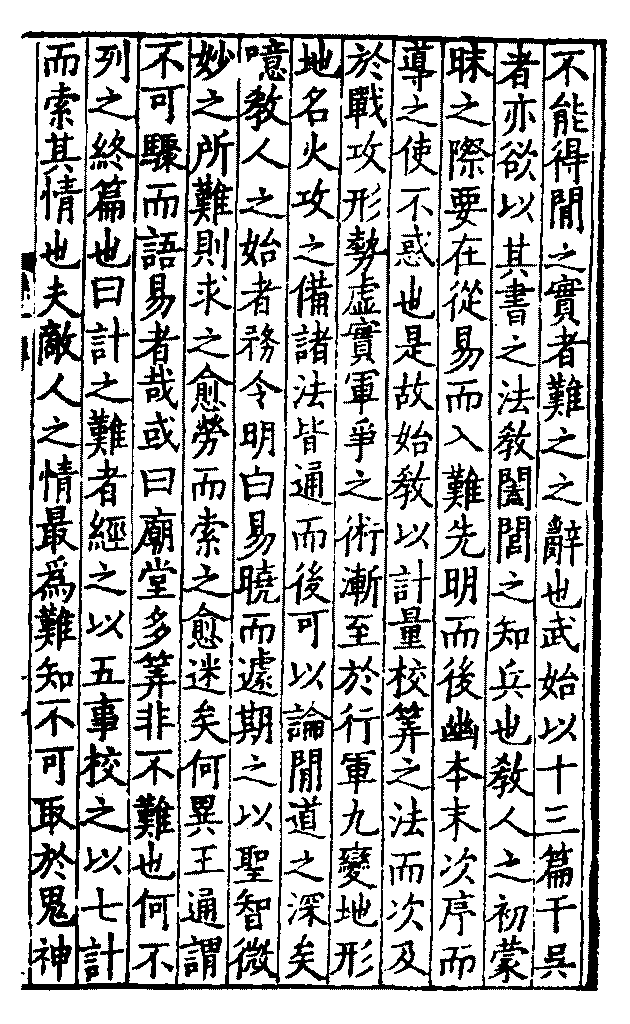 不能得閒之實者難之之辭也武始以十三篇干吳
者亦欲以其書之法教闔閭之知兵也教人之初蒙
昧之際要在從易而入難先明而後幽本末次序而
導之使不惑也是故始教以計量校筭之法而次及
於戰攻形勢虛實軍爭之術漸至於行軍九變地形
地名火攻之備諸法皆通而後可以論閒道之深矣
噫教人之始者務令明白易曉而遽期之以聖智微
妙之所難則求之愈勞而索之愈迷矣何異王通謂
不可驟而語易者哉或曰廟堂多筭非不難也何不
列之終篇也曰計之難者經之以五事校之以七計
而索其情也夫敵人之情最爲難知不可取於鬼神